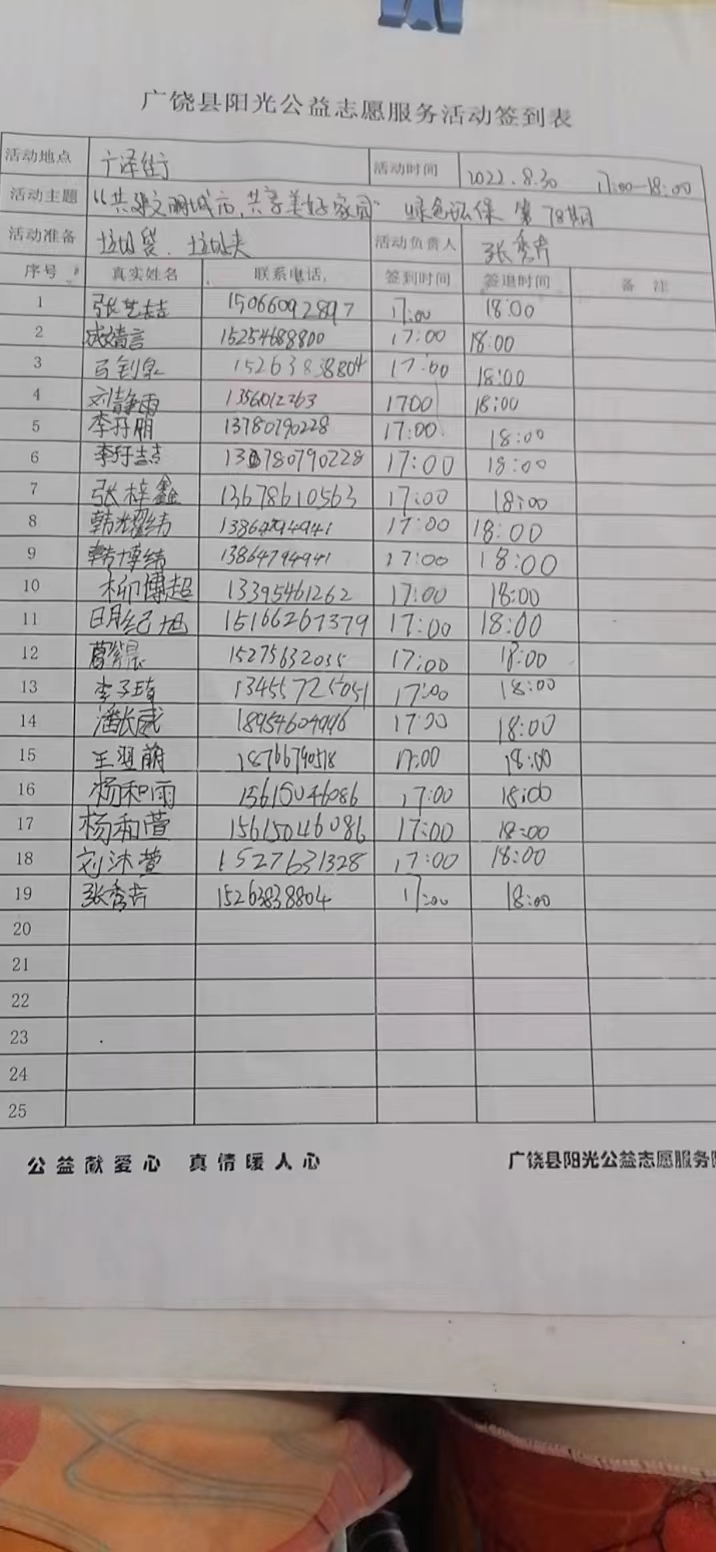 广饶县阳光公益志愿服务活动签到表
活动地点 广泽街 活动时间 2022.8.30 17:00-18:00
活动主题 “共建文明城市,共享美好家园” 绿色环保 第78期
活动准备 垃圾袋、垃圾夹 活动负责人 张秀芹
序号 真实姓名 联系电话 签到时间 签退时间 备注
1 张艺喆 15066092897 17:00 18:00
2 成靖言 15254688800 17:00 18:00
3 15263838804 17:00 18:00
4 刘静雨 1356012263 1700 18:00
5 李孖朋 13780790228 17:00 18:00
6 李孖喆 130780790228 17:00 18:00
7 张梓鑫 13678610563 17:00 18:00
8 韩耀纬 17:00 18:00
9 韩博纬 13864794941 17:00 18:00
10 柳博超 13395461262 17:00 18:00
11 明纪旭 15166267379 17:00 18:00
12 15275632035 17:00 18:00
13 李子琦 13455725051 17:00 18:00
14 潘长威 18954604946 17:00 18:00
15 王翌萌 17:00 18:00
16 杨和雨 15615046086 17:00 18:00
17 杨和萱 15615046086 17:00 18:00
18 刘沐萱 1527631328 17:00 18:00
19 张秀芹 15263838804 17:00 18:00
20
21
22
23
24
25
公益献爱心 真情暖人心 广饶县阳光公益志愿服务